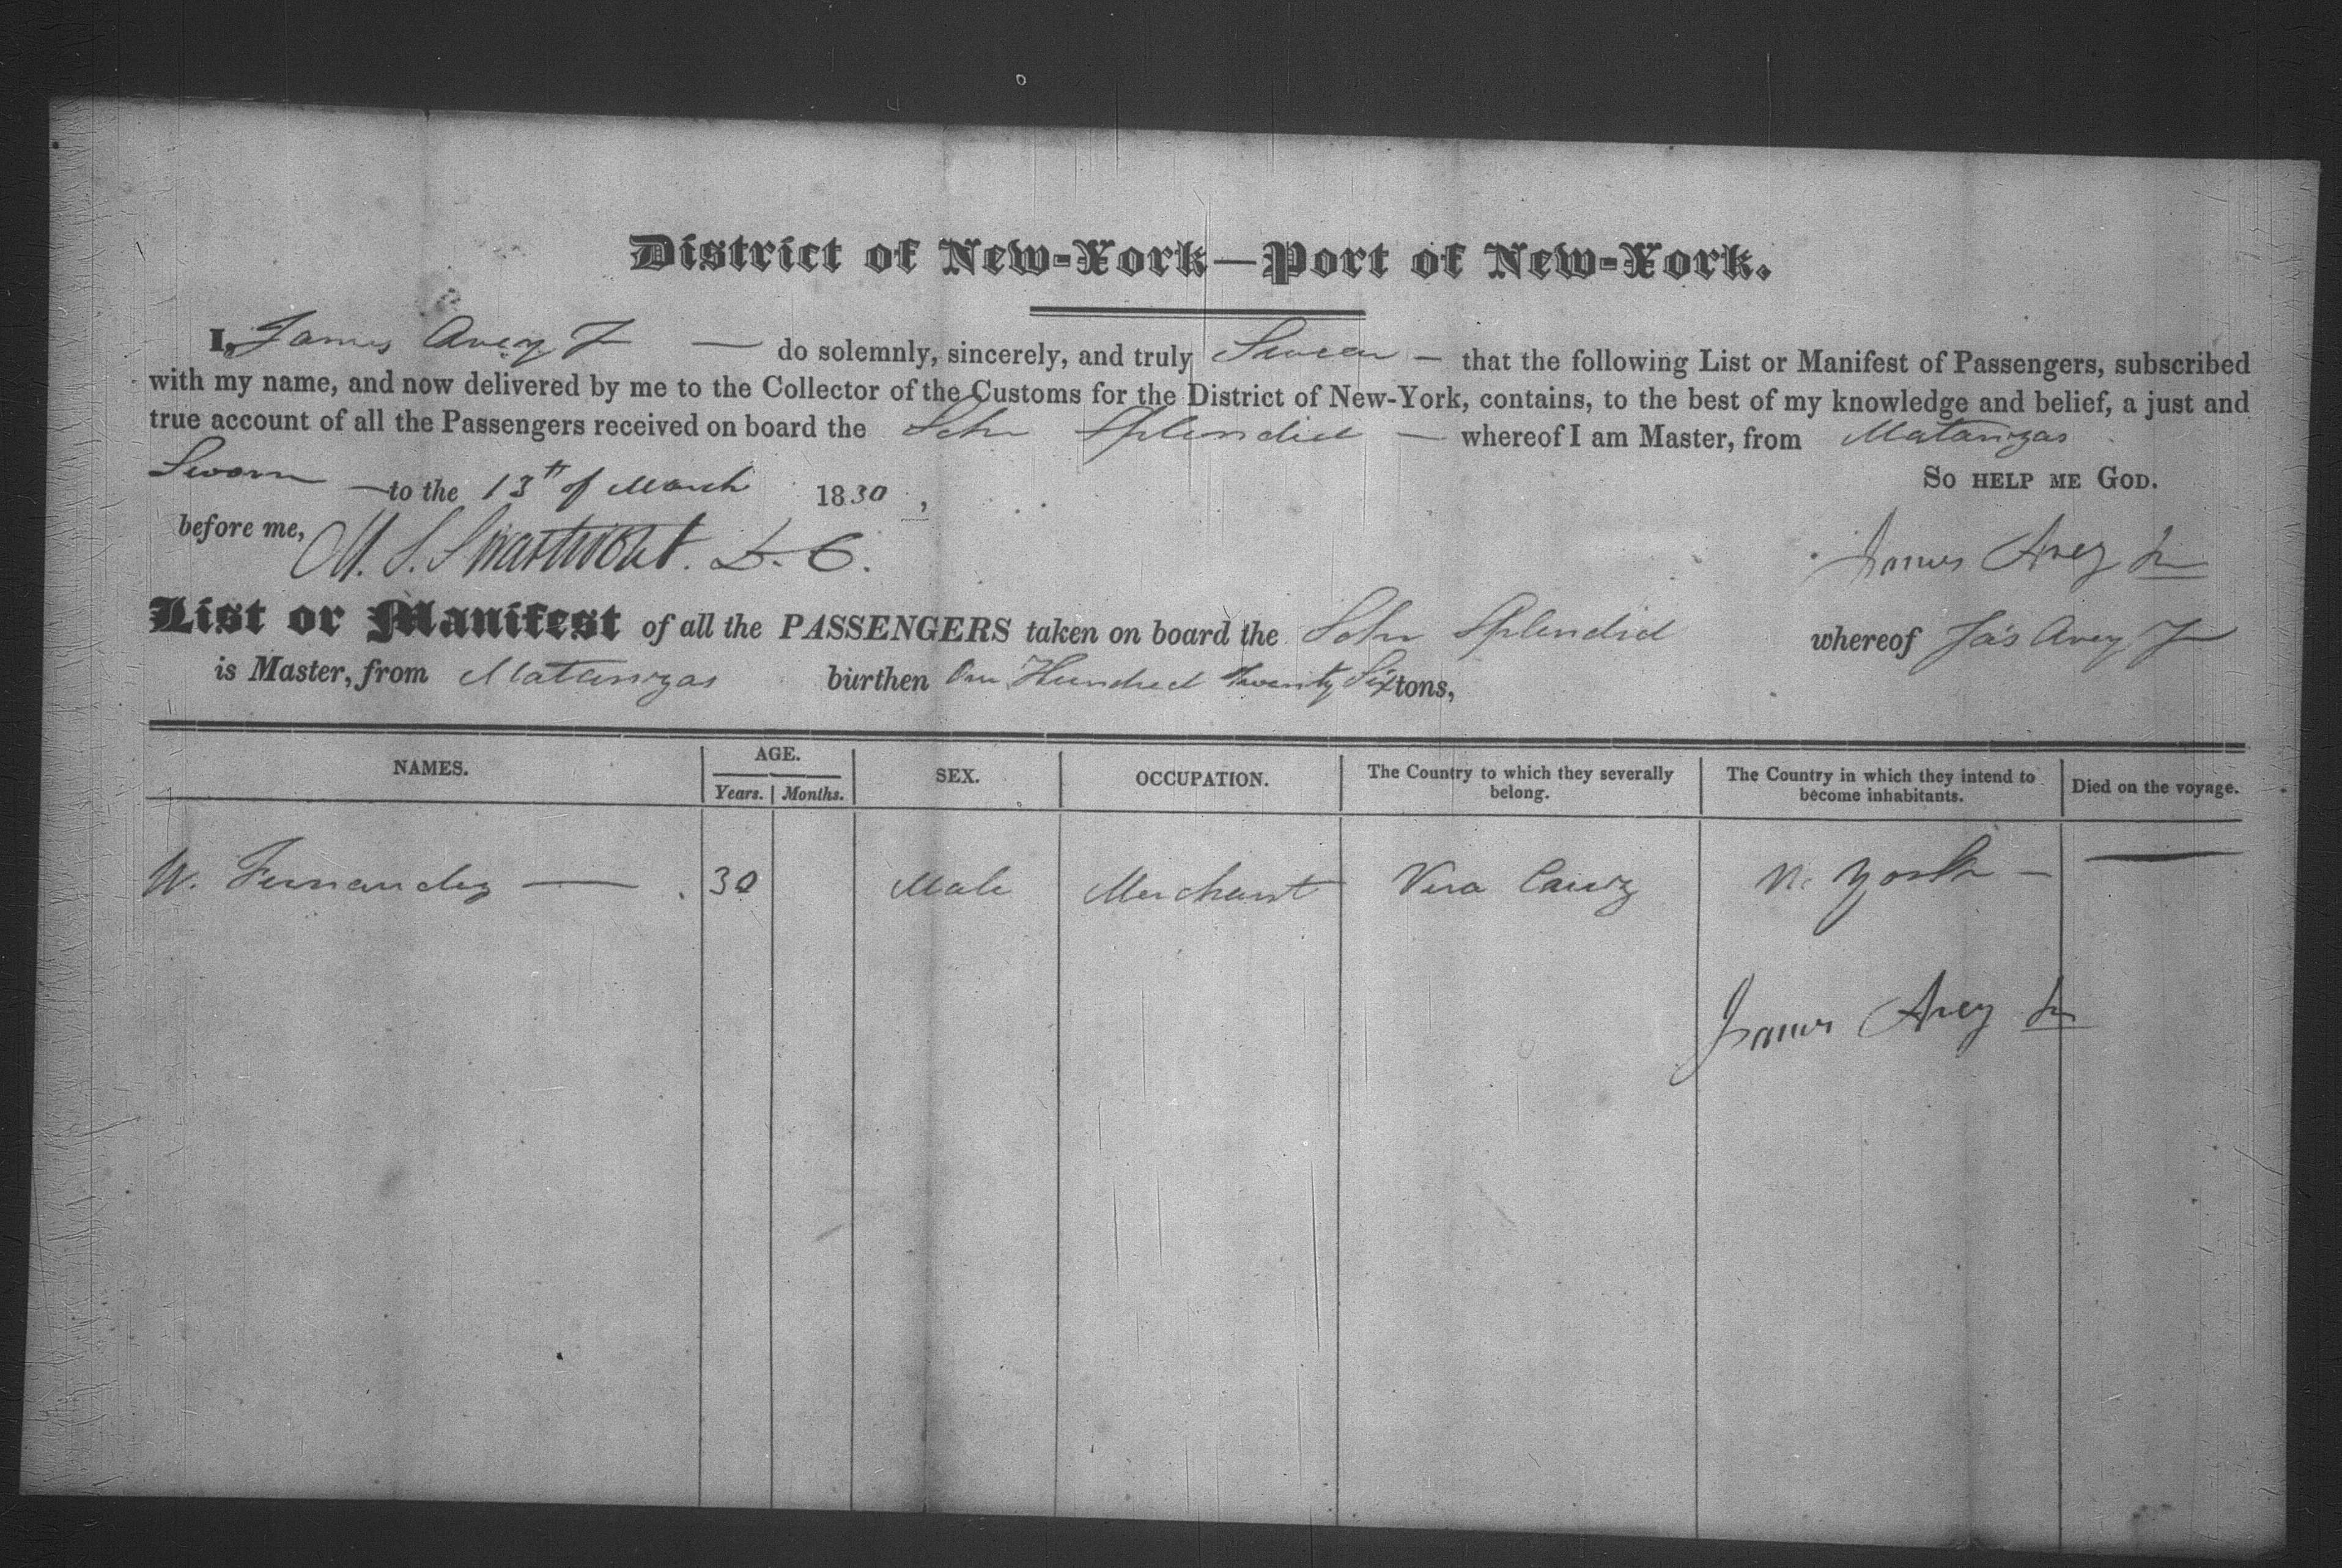 District of New-York—Port of New-York.
I, James Avery Jr — do solemnly, sincerely, and truly Swear — that the following List or Manifest of Passengers, subscribed
with my name, and now delivered by me to the Collector of the Customs for the District of New-York, contains, to the best of my knowledge and belief, a just and
true account of all the Passengers received on board the Schr Splendid — whereof I am Master, from Matanzas
So help me God.
Sworn — to the 13th of March 1830,
before me, M. S. Swartwout. D. C.
James Avery Jr
List or Manifest of all the PASSENGERS taken on board the Schr Splendid whereof Jas Avery Jr
is Master, from Matanzas burthen One Hundred Twenty Six tons,
NAMES. AGE. SEX. OCCUPATION. The Country to which they severally belong. The Country in which they intend to become inhabitants. Died on the voyage.
Years. Months.
W. Fernandez — 30 Male Merchant Vera Cruz N. York — —
James Avery Jr